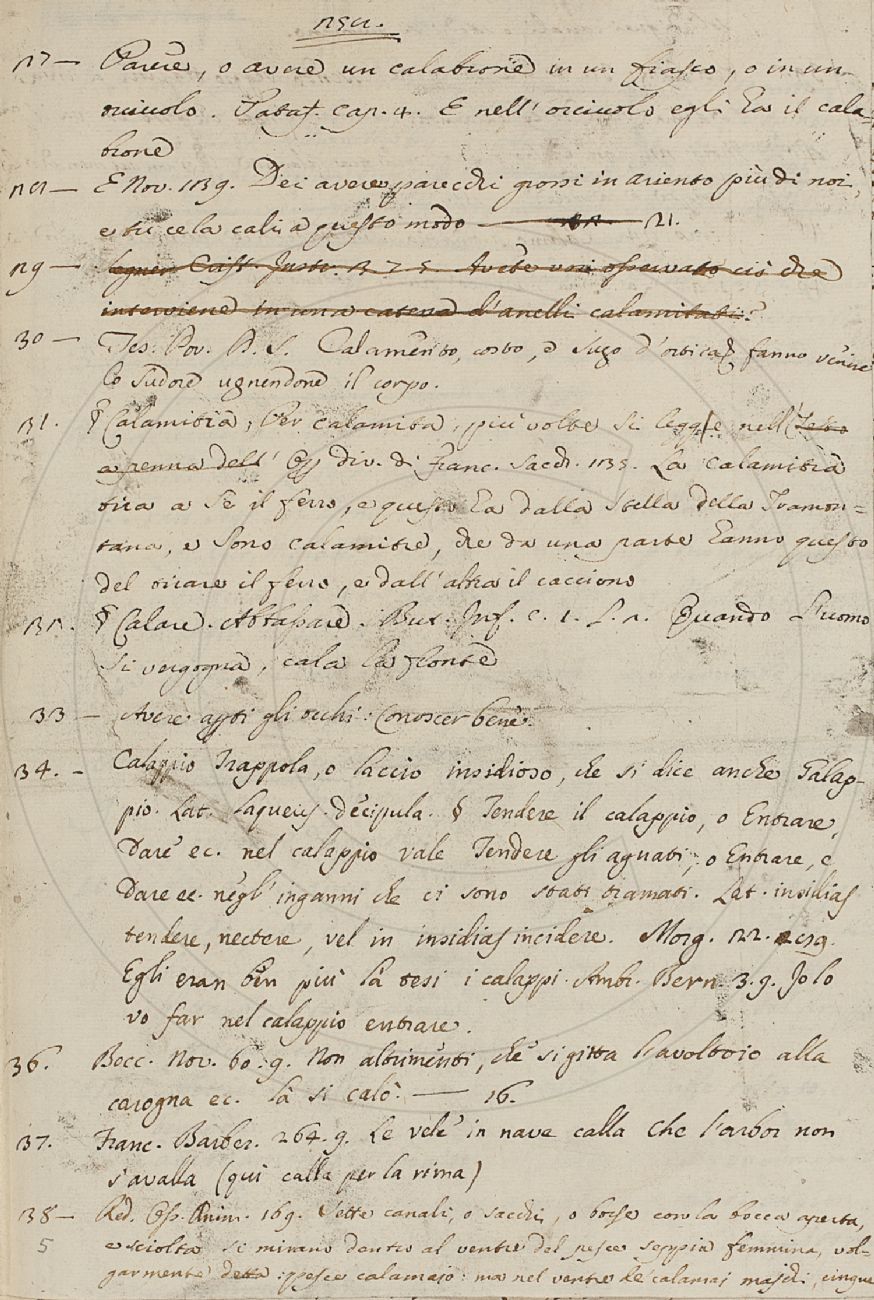 27 — Parere, o avere un calabrone in un fiasco, o in un
orciuolo. Pataf. Cap. 4. E nell' orciuolo egli ha il cala-
brone
28 — E Nov. 139. Dei avere parecchi grossi in ariento più di noi,
e tu ce la cali a questo modo — 21.
29 — Segner. Crist. Instr. 3. 25. Avete voi osservato ciò che
interviene in una catena d'anelli calamitati?
30 — Tes. Pov. P. S. Calamento, costo, e sugo d'ortica fanno venire
lo sudore ugnendone il corpo.
31. § Calamitia, Per calamita, più volte si legge nell'
a penna dell' Op. div. di Franc. Sacch. 135. La calamitia
tira a sè il ferro, e questo ha dalla Stella della Tramon=
tana, e sono calamitie, che da una parte hanno questo
del tirare il ferro, e dall' altra il cacciono
32. § Calare. Abbassare. But. Inf. c. 1. L. 2. Quando l'uomo
si vergogna, cala la fronte
33 — Avere apti gli occhi: Conoscer bene.
34. — Calappio Trappola, o laccio insidioso, che si dice anche Galap-
pio. Lat. laqueus. decipula. § Tendere il calappio, o Entrare,
Dare ec. nel calappio vale Tendere gli aguati, o Entrare, e
Dare ec. negl' inganni che ci sono stati tramati. Lat. insidias
tendere, nectere, vel in insidias incidere. Morg. 22.
Egli eran ben più là tesi i calappi. Ambr. Bern. 3. 9. Io lo
vo far nel calappio entrare.
36. Bocc. Nov. 60. 9. Non altrimenti, che si gitta l'avoltoio alla
carogna ec. là si calò. — 16.
37. Franc. Barber. 264. 9. Le vele in nave calla Che l'arbor non
s'avalla (qui calla per la rima)
38 — Red. Oss. Anim. 169. Sette canali, o sacchi, o borse con la bocca aperta,
5 e sciolta si mirano dentro al ventre del pesce seppia femmina, vol-
garmente detta pesce calamaio: ma nel ventre de' calamai maschi, cinque